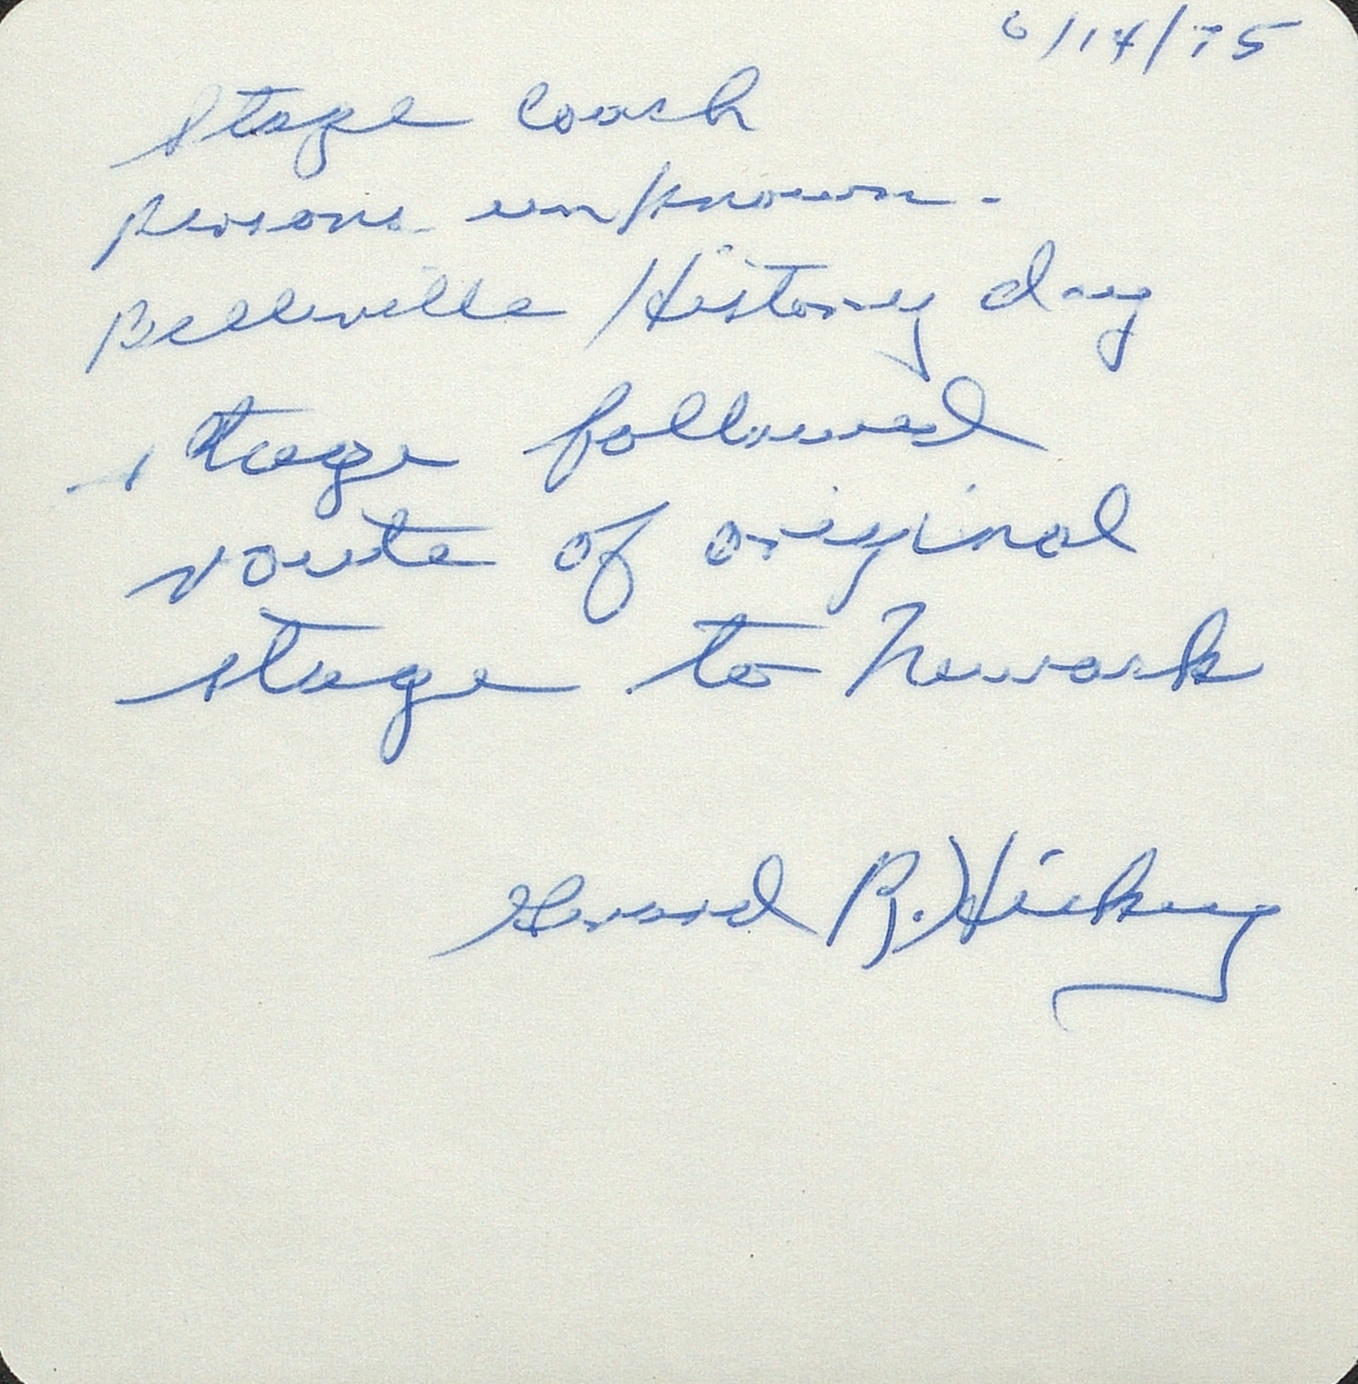 6/14/75
Stage Coach
persons unknown -
Belleville History day
stage followed
route of original
stage to Newark
R. Hickey